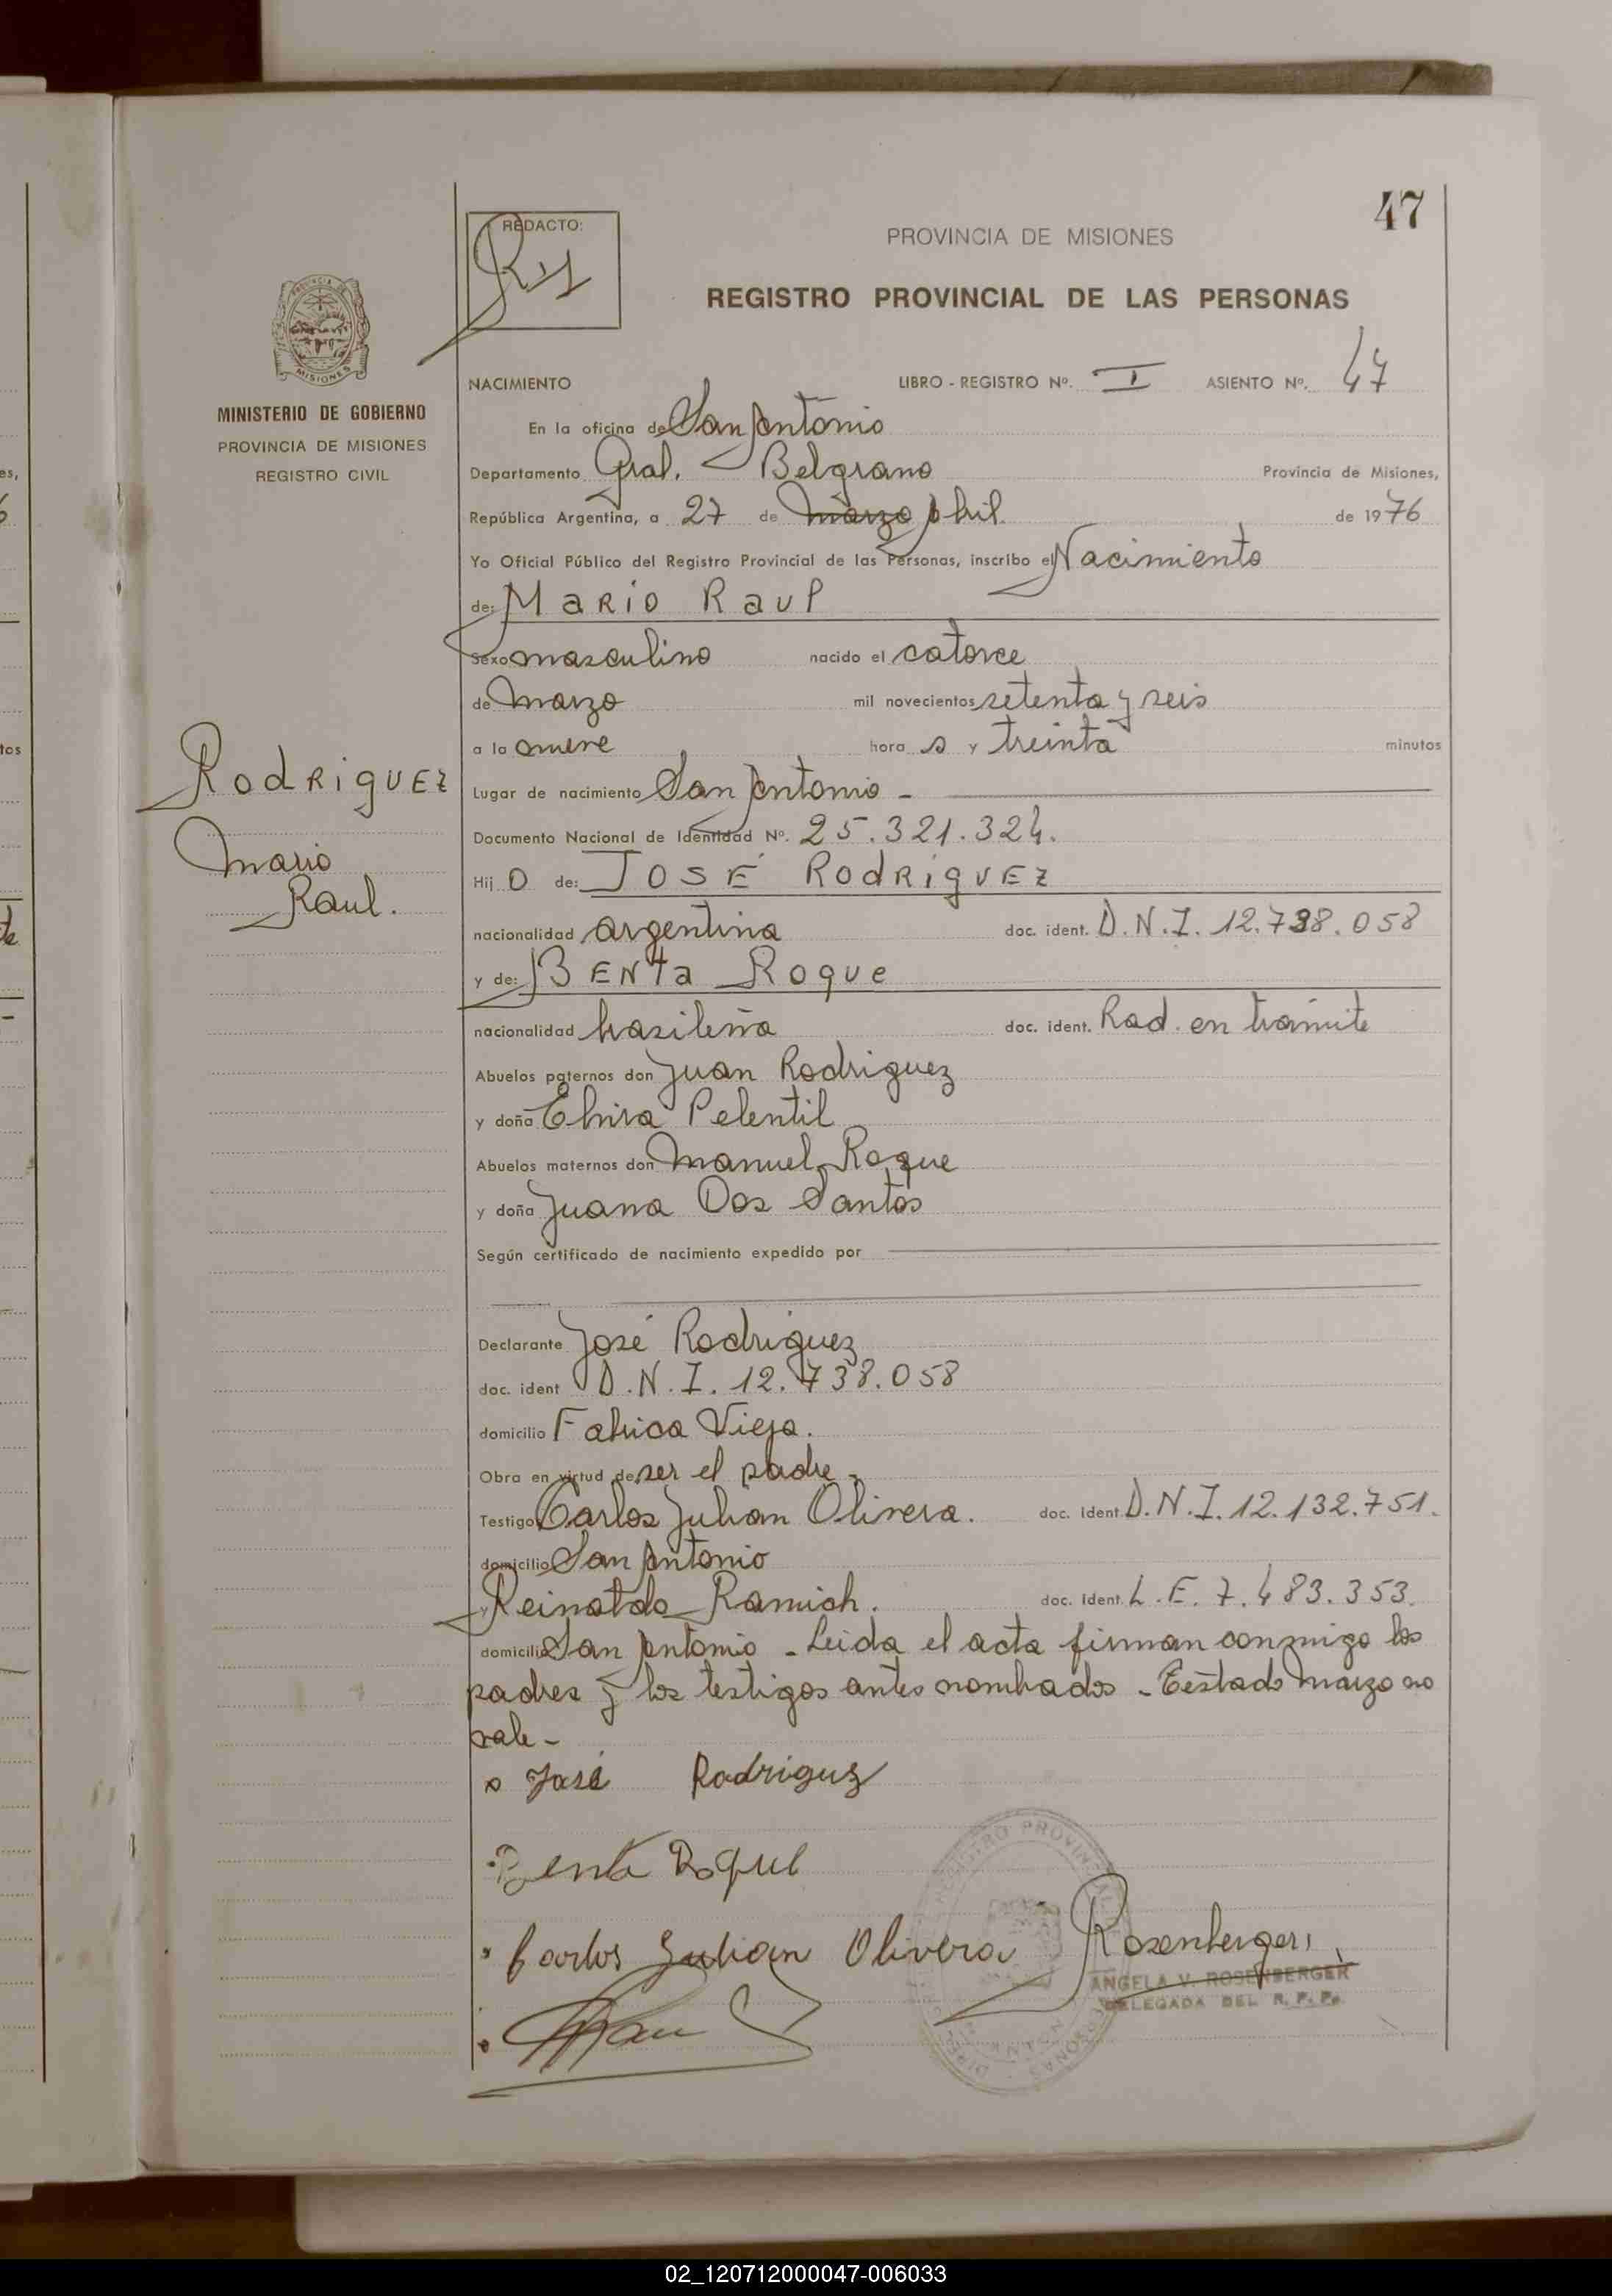 47
REDACTO:
PROVINCIA DE MISIONES
REGISTRO PROVINCIAL DE LAS PERSONAS
PROVINCIA DE
MISIONES
MINISTERIO DE GOBIERNO
PROVINCIA DE MISIONES
REGISTRO CIVIL
NACIMIENTO LIBRO - REGISTRO Nº. I ASIENTO Nº. 47
En la oficina de San Antonio
Departamento Gral. Belgrano Provincia de Misiones,
República Argentina, a 27 de marzo Abril de 1976
Yo Oficial Público del Registro Provincial de las Personas, inscribo el Nacimiento
de: Mario Raul
Sexo masculino nacido el catorce
de Marzo mil novecientos setenta y seis
a la onere hora s y treinta minutos
Rodriguez
Mario
Raul.
Lugar de nacimiento San Antonio -
Documento Nacional de Identidad Nº. 25.321.324.
Hij o de: José Rodriguez
nacionalidad argentina doc. ident. D.N.I. 12.738.058
y de: Benta Roque
nacionalidad brasileña doc. ident. Rad. en trámite
Abuelos paternos don Juan Rodriguez
y doña Elvira Pelentil
Abuelos maternos don Manuel Roque
y doña Juana Dos Santos
Según certificado de nacimiento expedido por
Declarante José Rodriguez
doc. ident D.N.I. 12.738.058
domicilio Fabrica Vieja.
Obra en virtud de ser el padre -
Testigo Carlos Julian Olivera. doc. ident D.N.I. 12.132.751.
domicilio San Antonio
y Reinoldo Ramich. doc. ident. L.E. 7.483.353.
domicilio San Antonio - Leida el acta firman conmigo los
padres y los testigos antes nombrados - Testado Marzo no
vale -
José Rodriguz
Benta Roque
Carlos Julian Olivera Rosenberger
ANGELA V. ROSENBERGER
DELEGADA DEL R. P. P.
02_120712000047-006033